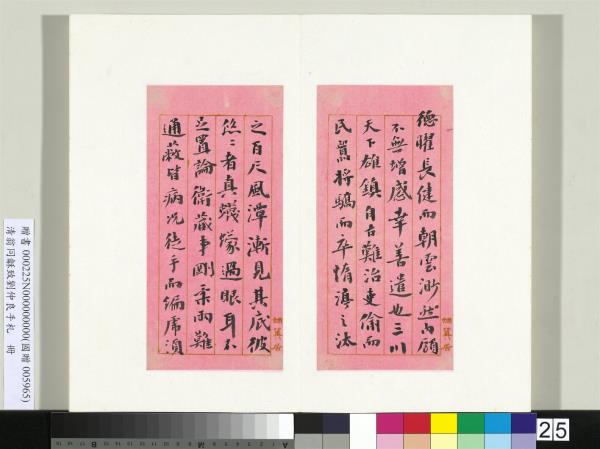 德曜長健而朝雲渺然內顧
不無增感幸善遣也三川
天下雄鎮自古難治吏偷而
民囂將驕而卒惰濟之汰
之百尺風潭漸見其底彼
條者真蟻壤過眼耳不
足置論衛藏事剛柔兩難
通蔽皆病況徒手而編席須
贈書000225N000000000(國贈005965)
清翁同龢致劉仲良手札 冊
25